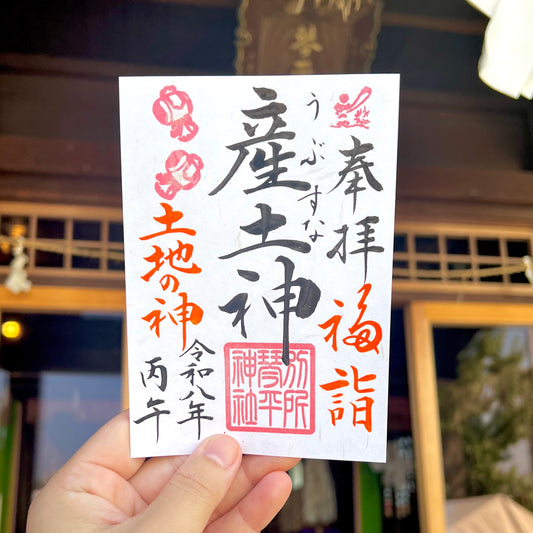 奉拝
福詣
うぶすな
産土神
琴平
神社
土地の神
令和八年
丙午